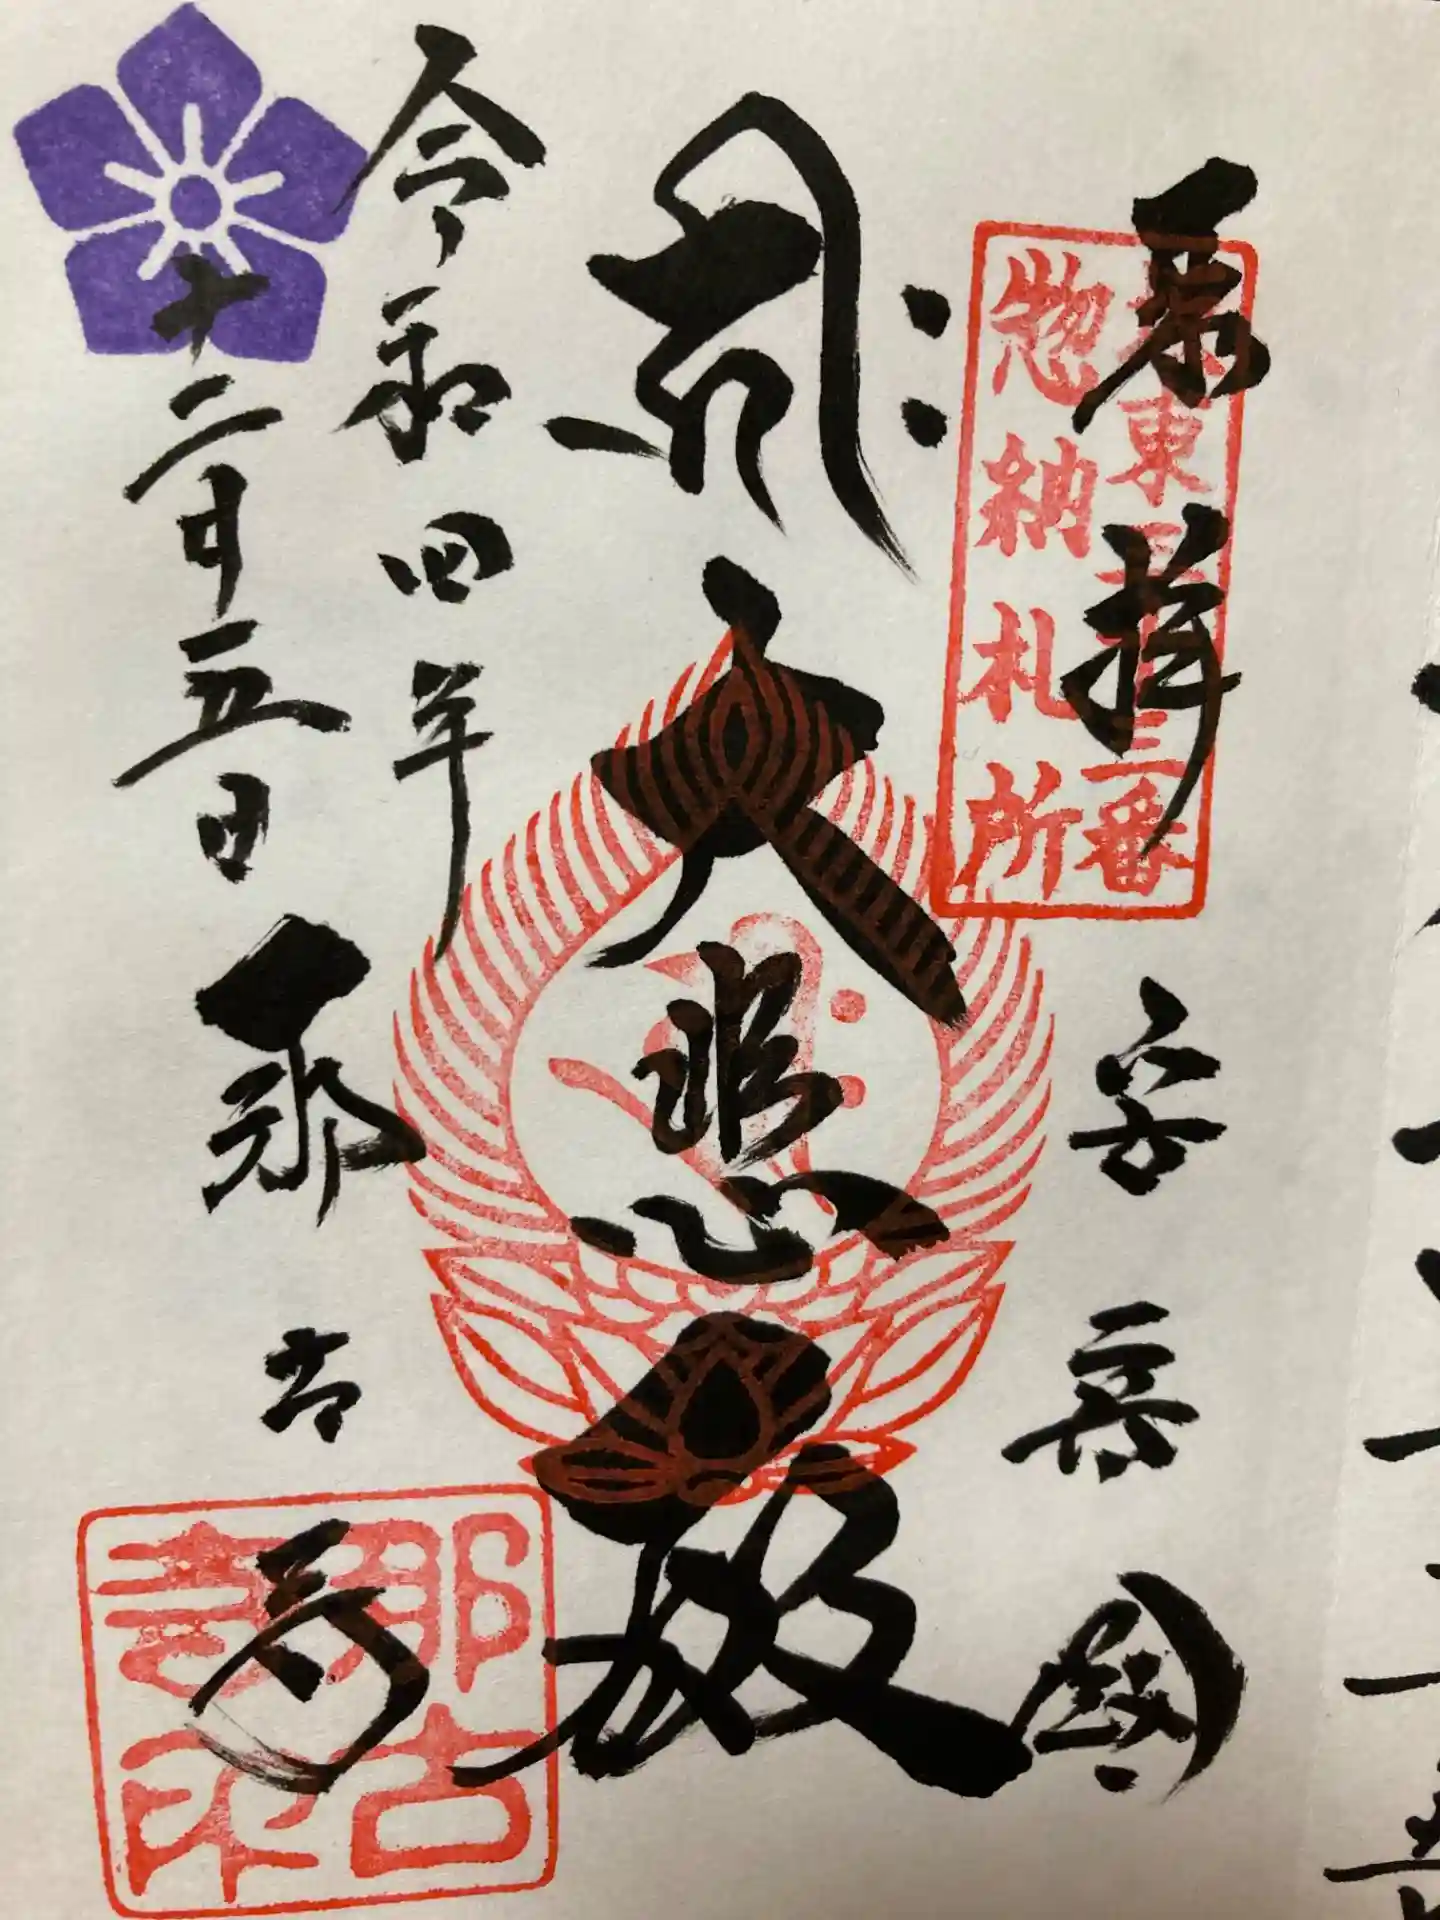 奉拝
安房国
坂東三十三番
惣納札所
大悲殿
令和四年
十二月五日
那古寺
那古寺印